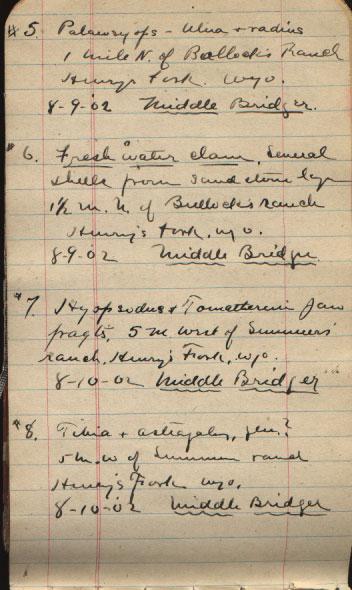 # 5. Palaeosyops - Ulna + radius
1 mile N. of Bullock's Ranch
Henry's Fork. Wyo.
8-9-'02 Middle Bridger.
# 6. Fresh water clam, several
shells from sandstone layer
1½ m. N. of Bullock's ranch
Henry's Fork, Wyo.
8-9-'02 Middle Bridger.
# 7. Hyopsodus + Jaw
fragts, 5 m. west of Summers'
ranch, Henry's Fork, Wyo.
8-10-02 Middle Bridger
# 8. Tibia + astragalus, gen.?
5 m. W of Summers ranch
Henry's Fork Wyo.
8-10-'02 Middle Bridger